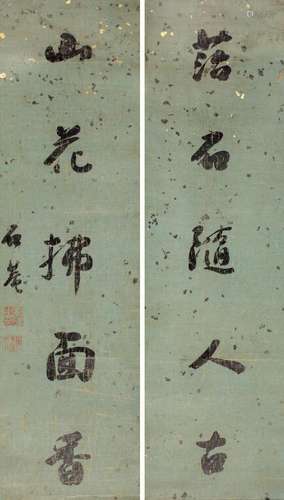 菭石隨人古
山花拂面香
石菴